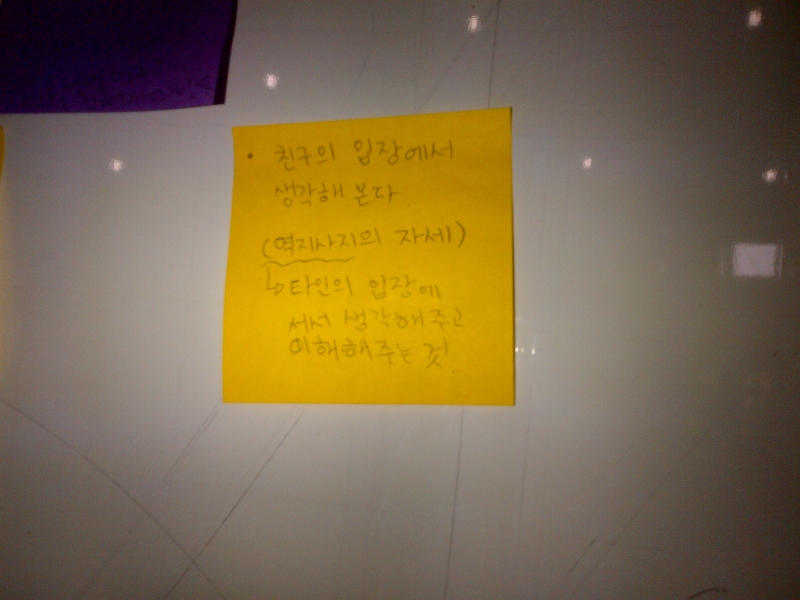 • 친구의 입장에서
생각해 본다
(역지사지의 자세)
↳타인의 입장에
서서 생각해주고
이해해주는 것